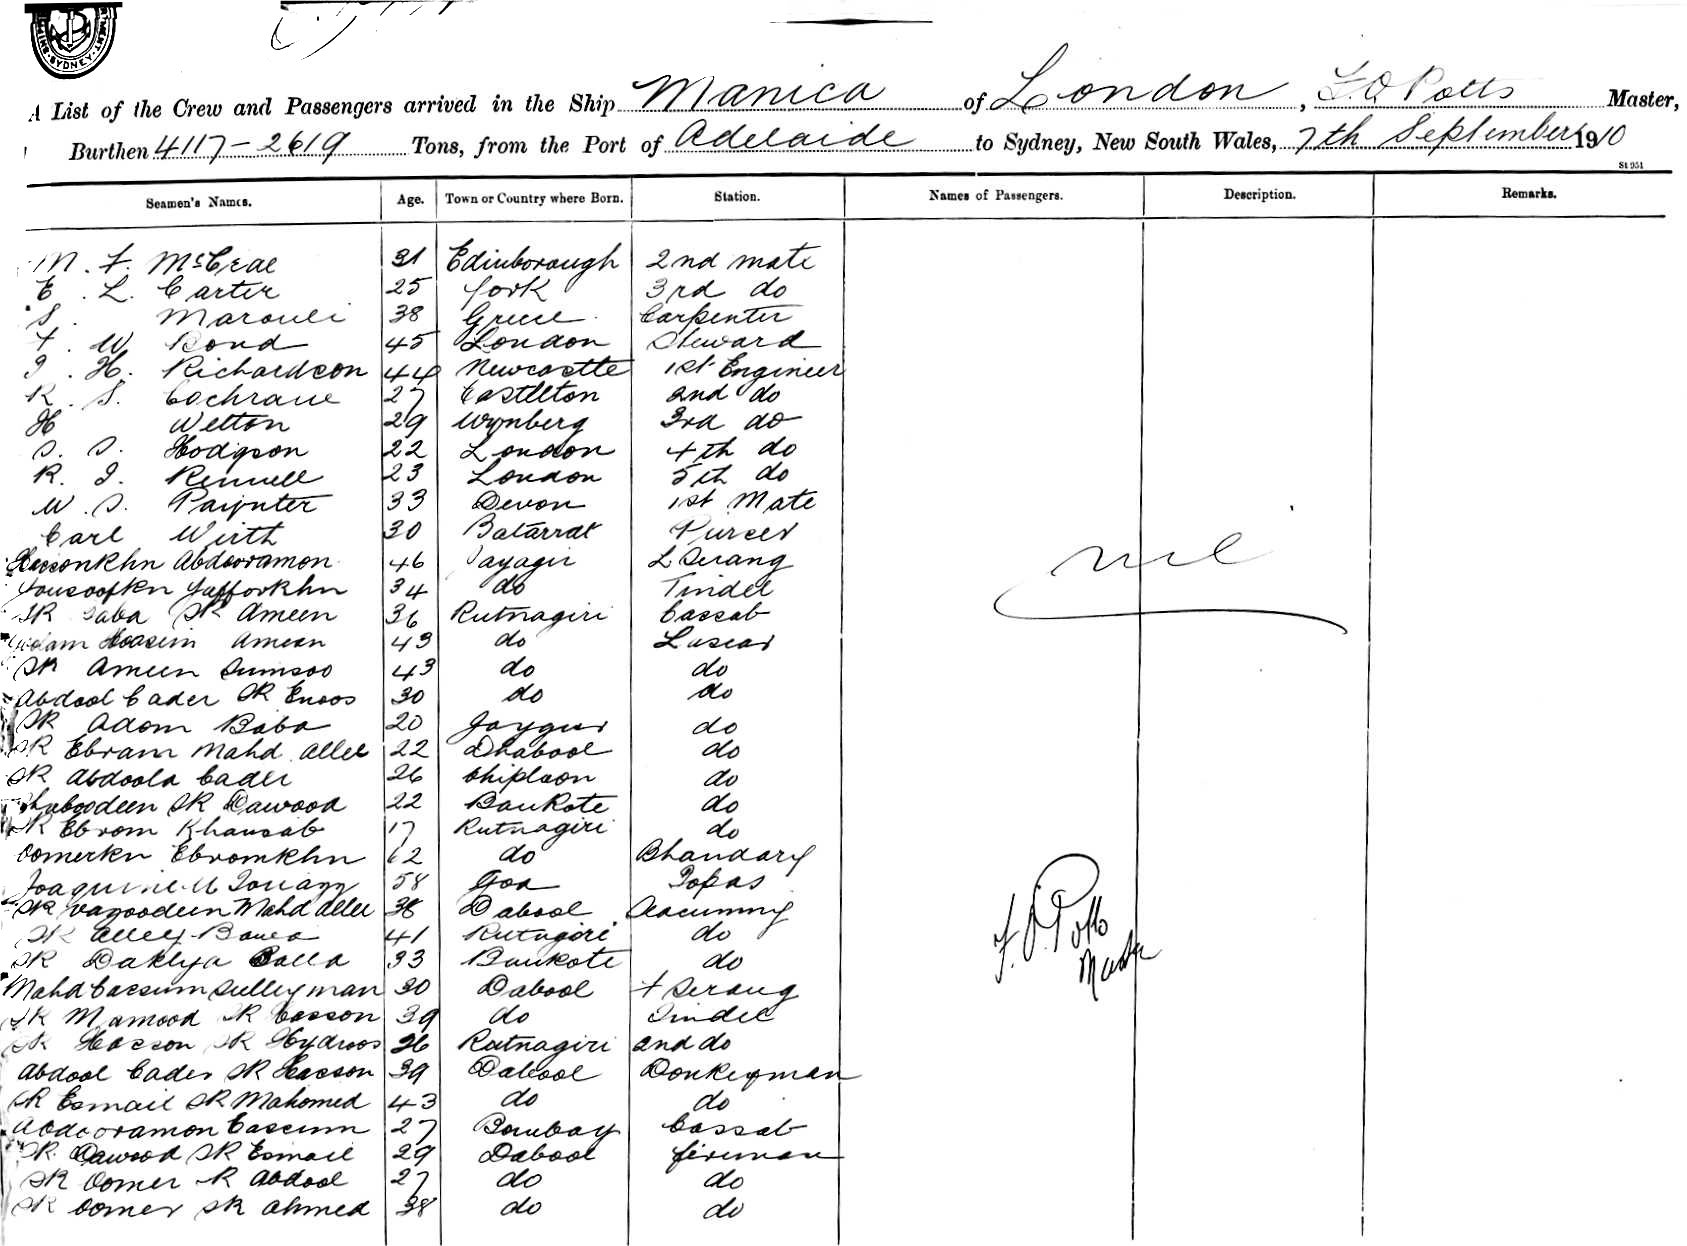 SYDNEY
A List of the Crew and Passengers arrived in the Ship Manica of London, F.O. Potts Master,
Burthen 4117-2619 Tons, from the Port of Adelaide to Sydney, New South Wales, 7th September 1910
St 951
Seamen's Names. Age. Town or Country where Born. Station. Names of Passengers. Description. Remarks.
M. F. McCrae 31 Edinborough 2nd mate
E. L. Carter 25 York 3rd do
S. Marouli 38 Greece Carpenter
F. W. Bond 45 London Steward
J. H. Richardson 44 Newcastle 1st Engineer
R. S. Cochrane 27 Castleton 2nd do
H Welton 29 Wynberg 3rd do
S. S. Hodgson 22 London 4th do
R. J. Rennell 23 London 5th do
W. S. Paynter 33 Devon 1st Mate
Carl Wirth 30 Balarrat Purser
Hassonkhn Abdooramon 46 Jayagir L Serang
Yousoofkn Gaffoorkhn 34 do Tindel
SK Baba SK Ameen 36 Rutnagiri Cassab
Goolam Hoosein Ameen 43 do Lascar
SK Ameen Sumsoo 43 do do
Abdool Cader SK Enoos 30 do do
SK Adom Baba 20 Jaygur do
SK Ebram Mahd Allee 22 Dhabool do
SK Abdoola Cader 26 Chiploon do
Shaboodeen SK Dawood 22 Bankote do
SK Ebrom Khansab 17 Rutnagiri do
Oomerkn Ebromkhn 62 do Bhandary
Joaquine 58 Goa Topas
SK Mahd Allee 38 Dabool
SK Alley Bawa 41 Rutnagiri do
SK Dakhya Balla 33 Bankote do
Mahd Cassum Sulleyman 30 Dabool F Serang
SK Mamood SK Casson 39 do Tindel
SK Hasson SK Hydroos 26 Ratnagiri 2nd do
Abdool Cader SK Hasson 39 Dabool Donkeyman
SK Esmail SK Mahomed 43 do do
Abdooramon Cassum 27 Bombay Cassab
SK Dawood SK Esmail 29 Dabool fireman
SK Oomer SK Abdool 27 do do
SK Oomer SK Ahmed 38 do do
nil
F. O. Potts
Master